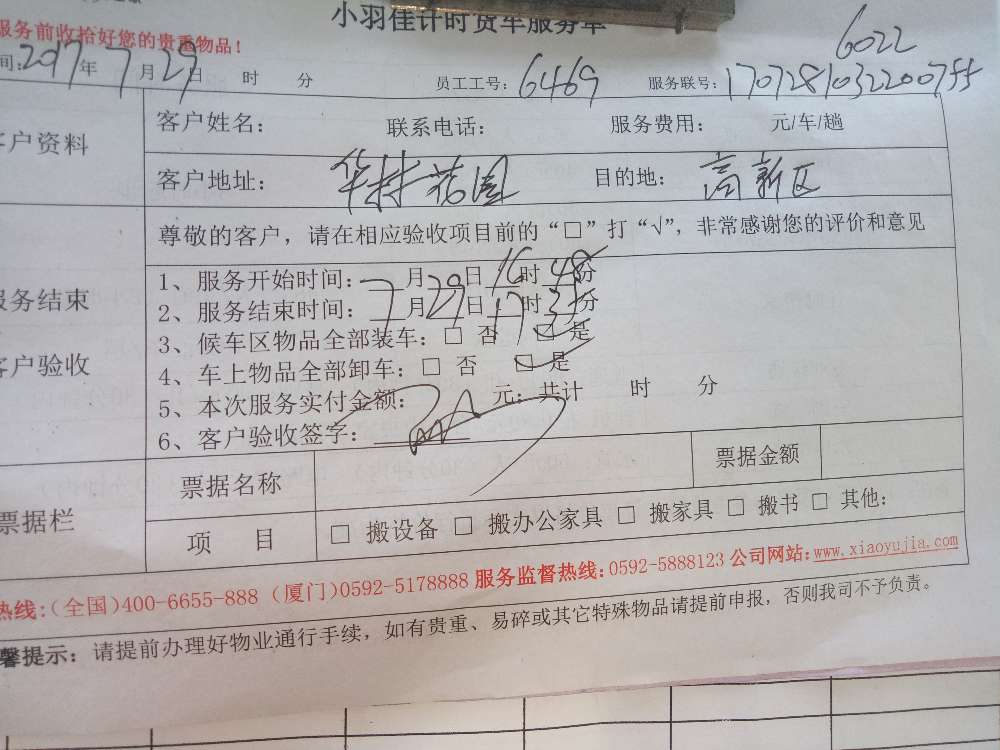 小羽佳计时货车服务单
服务前收拾好您的贵重物品!
6022
间: 2017年 7月29日 时 分 员工工号: 6469 服务联号: 1707281032200755
客户资料
客户姓名: 联系电话: 服务费用: 元/车/趟
客户地址: 华林花园 目的地: 高新区
尊敬的客户，请在相应验收项目前的“□”打“√”，非常感谢您的评价和意见
服务结束
客户验收
1、服务开始时间: 7月29日16时48分
2、服务结束时间: 7月29日17时37分
3、候车区物品全部装车: □ 否 ☑ 是
4、车上物品全部卸车: □ 否 ☑ 是
5、本次服务实付金额: 元; 共计 时 分
6、客户验收签字:
票据栏
票据名称 票据金额
项 目 □ 搬设备 □ 搬办公家具 □ 搬家具 □ 搬书 □ 其他:
热线:(全国)400-6655-888 (厦门)0592-5178888 服务监督热线:0592-5888123 公司网站:www.xiaoyujia.com
馨提示: 请提前办理好物业通行手续，如有贵重、易碎或其它特殊物品请提前申报，否则我司不予负责。